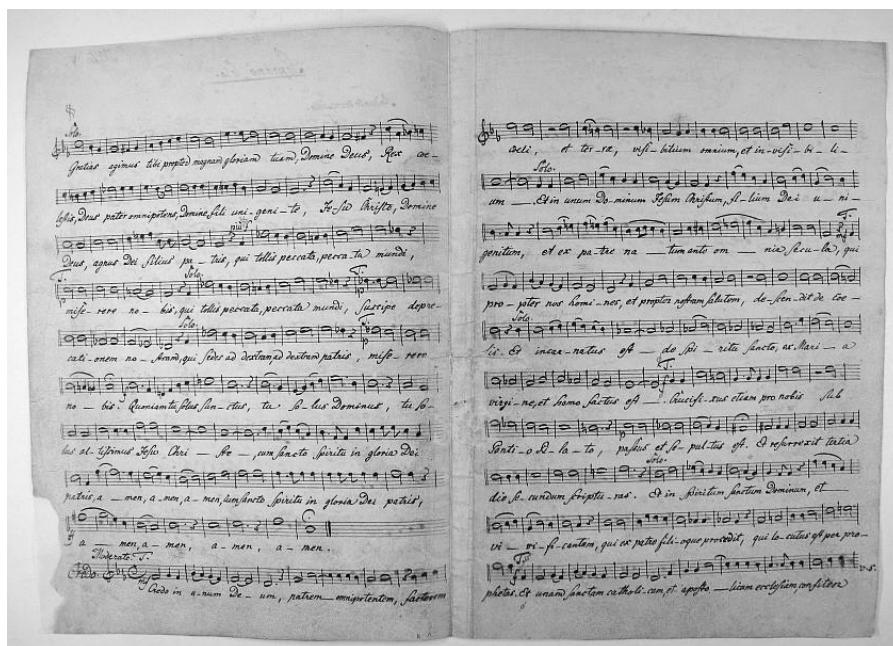 Solo.
Gratias agimus tibi propter magnam gloriam tuam, Domine Deus, Rex coe-
lestis, Deus pater omnipotens, Domine fili uni-geni-te, Jesu Christe, Domine
Deus, agnus Dei filius pa-tris, qui tollis peccata, pecca-ta mundi,
T. Solo. T.
mise-rere no-bis, qui tollis peccata, peccata mundi, suscipe depre-
Solo. T.
cati-onem no-stram, qui sedes ad dextram ad dextram patris, mise-rere
no-bis. Quoniam tu solus san-ctus, tu so-lus Dominus, tu so-
lus al-tissimus Jesu Chri-ste, cum sancto spiritu in gloria Dei
patris, a-men, a-men, a-men, cum sancto spiritu in gloria Dei patris,
a-men, a-men, a-men, a-men.
Moderato. T.
Credo.
Credo in u-num De-um, patrem omnipotentem, factorem
coeli, et ter-rae, visi-bilium omnium, et in-visi-bi-li-
Solo.
um. Et in unum Do-minum Jesum Christum, fi-lium Dei u-ni-
T.
genitum, et ex pa-tre na-tum ante om-nia secu-la, qui
pro-pter nos homi-nes, et propter nostram salutem, de-scen-dit de coe-
Solo.
lis. Et incar-natus est de Spi-ritu sancto, ex Mari-a
T.
virgi-ne, et homo factus est. Crucifi-xus etiam pro nobis sub
Ponti-o Pi-la-to, passus et se-pul-tus est. Et resurrexit tertia
Solo.
die se-cundum scriptu-ras. Et in spiritum sanctum Dominum, et
vi-vi-fi-cantem, qui ex patre fili-oque procedit, qui lo-cutus est per pro-
Tutti
phetas. Et unam sanctam catholi-cam, et aposto-licam ecclesiam, confiteor
v.s.